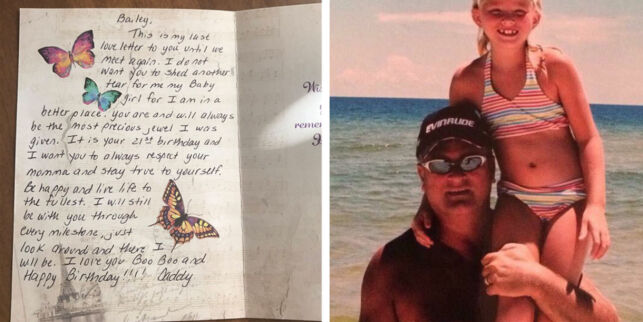 Bailey,
This is my last
love letter to you until we
meet again. I do not
want you to shed another
tear for me my Baby
girl for I am in a
better place. You are and will always
be the most precious jewel I was
given. It is your 21st birthday and
I want you to always respect your
momma and stay true to yourself.
Be happy and live life to
the fullest. I will still
be with you through
every milestone, just
look around and there I
will be. I love you Boo Boo and
Happy Birthday!!!! Daddy
EVINRUDE